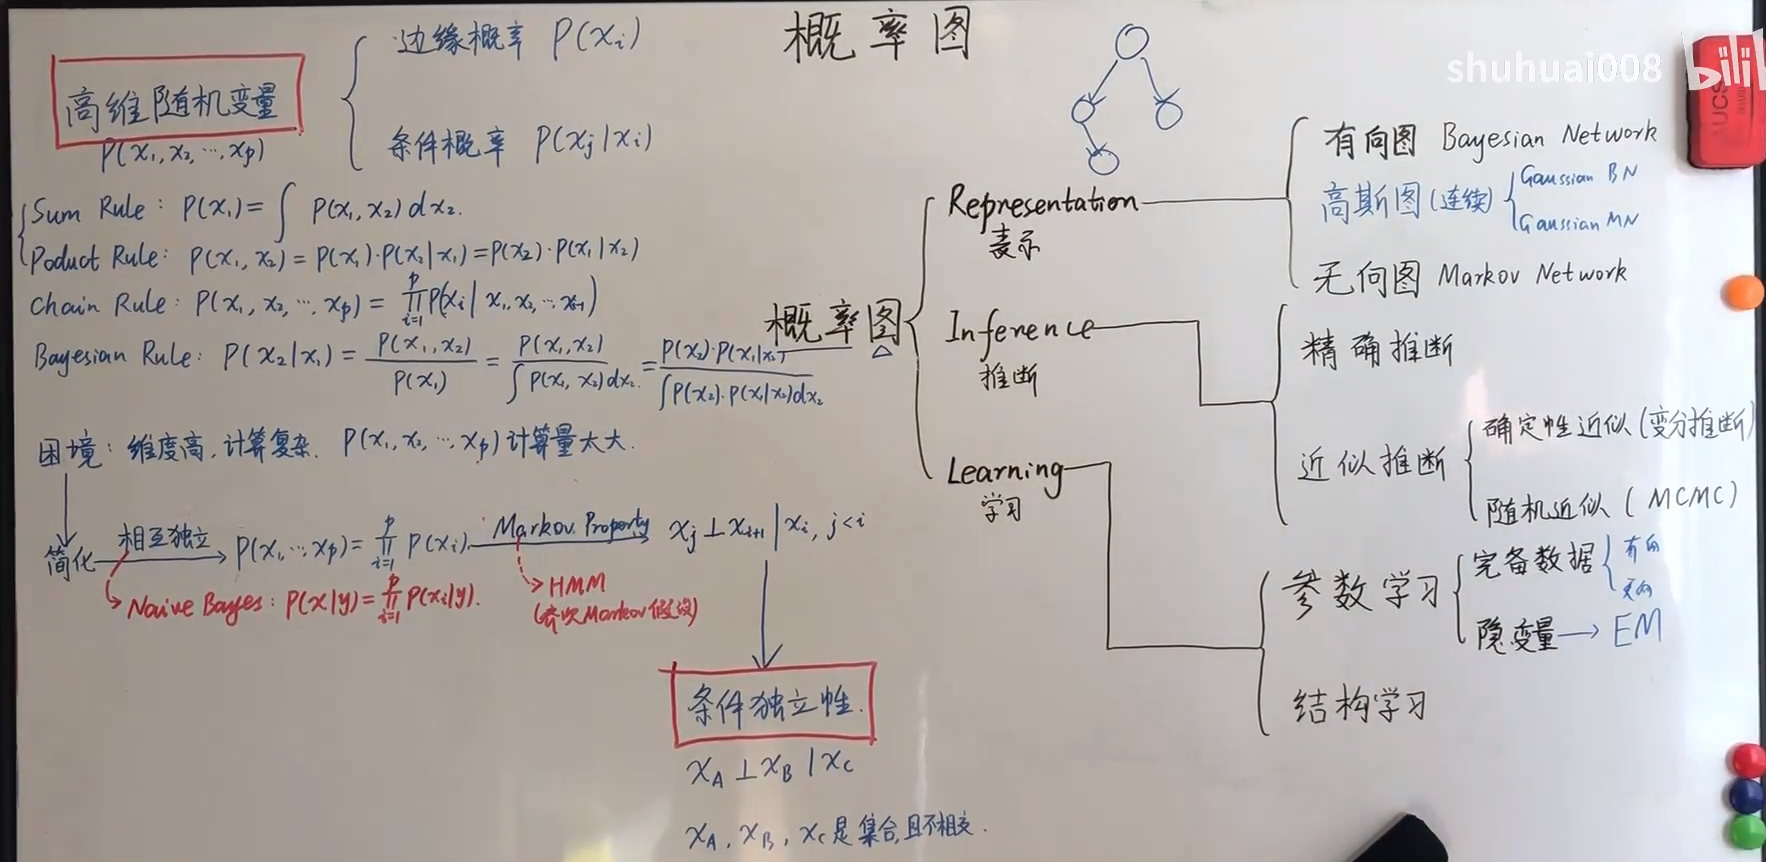 概率图
shuhuai008
bili
高维随机变量
P(x₁, x₂, ⋯, xₚ)
边缘概率 P(xᵢ)
条件概率 P(xⱼ|xᵢ)
Sum Rule: P(x₁) = ∫ P(x₁, x₂) dx₂.
Poduct Rule: P(x₁, x₂) = P(x₁)·P(x₂|x₁) = P(x₂)·P(x₁|x₂)
Chain Rule: P(x₁, x₂, ⋯, xₚ) = ∏ᵢ₌₁ᵖ P(xᵢ | x₁, x₂, ⋯ xᵢ₋₁)
Bayesian Rule: P(x₂|x₁) = P(x₁, x₂) / P(x₁) = P(x₁, x₂) / ∫ P(x₁, x₂) dx₂. = P(x₂)·P(x₁|x₂) / ∫ P(x₂)·P(x₁|x₂) dx₂
困境: 维度高, 计算复杂. P(x₁, x₂, ⋯, xₚ) 计算量太大.
简化
相互独立
P(x₁, ⋯, xₚ) = ∏ᵢ₌₁ᵖ P(xᵢ).
Markov Property
xⱼ ⊥ xᵢ₊₁ | xᵢ, j < i
Naive Bayes: P(x|y) = ∏ᵢ₌₁ᵖ P(xᵢ|y).
HMM
(齐次Markov假设)
条件独立性.
x_A ⊥ x_B | x_C
x_A, x_B, x_C 是集合, 且不相交.
概率图
Representation
表示
有向图 Bayesian Network
高斯图 (连续)
Gaussian BN
Gaussian MN
无向图 Markov Network
Inference
推断
精确推断
近似推断
确定性近似 (变分推断)
随机近似 (MCMC)
Learning
学习
参数学习
完备数据
有向
无向
隐变量 → EM
结构学习